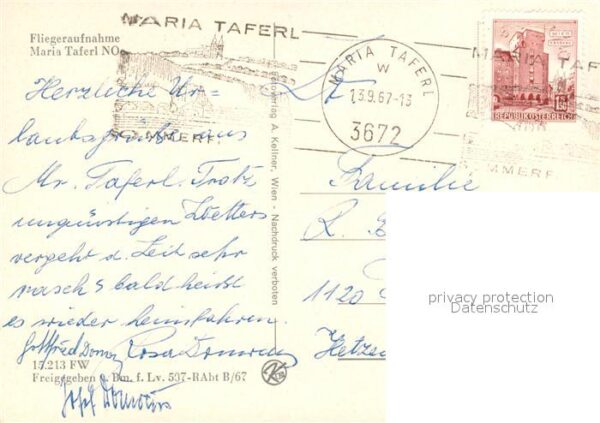 Fliegeraufnahme
Maria Taferl NÖ.
MARIA TAFERL
SOMMERFR
Herzliche Ur=
laubsgrüße aus
Mr. Taferl. Trotz
ungünstigen Wetters
vergeht d. Zeit sehr
rasch & bald heißt
es wieder heimfahren.
Gottfried Rosa
Josef
15.213 FW
Freigegeben v. Bm. f. Lv. 507-RAbt B/67
Fotoverlag A. Kellner, Wien - Nachdruck verboten
MARIA TAFERL
W
13.9.67-13
3672
MARIA TAF
OMMERFR
1S50
REPUBLIK ÖSTERREICH
Familie
R.
1120
Hetzen
privacy protection
Datenschutz